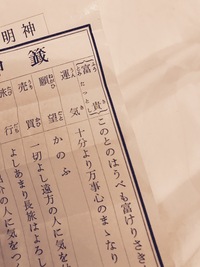 神明
籤
富貴 このとのはうべも富けりさき
運気 十分より万事心のまゝなり
願望 かのふ
売買 一切よし遠方の人に気を
旅行 よしあまり長旅はよろし
の人に気をつ